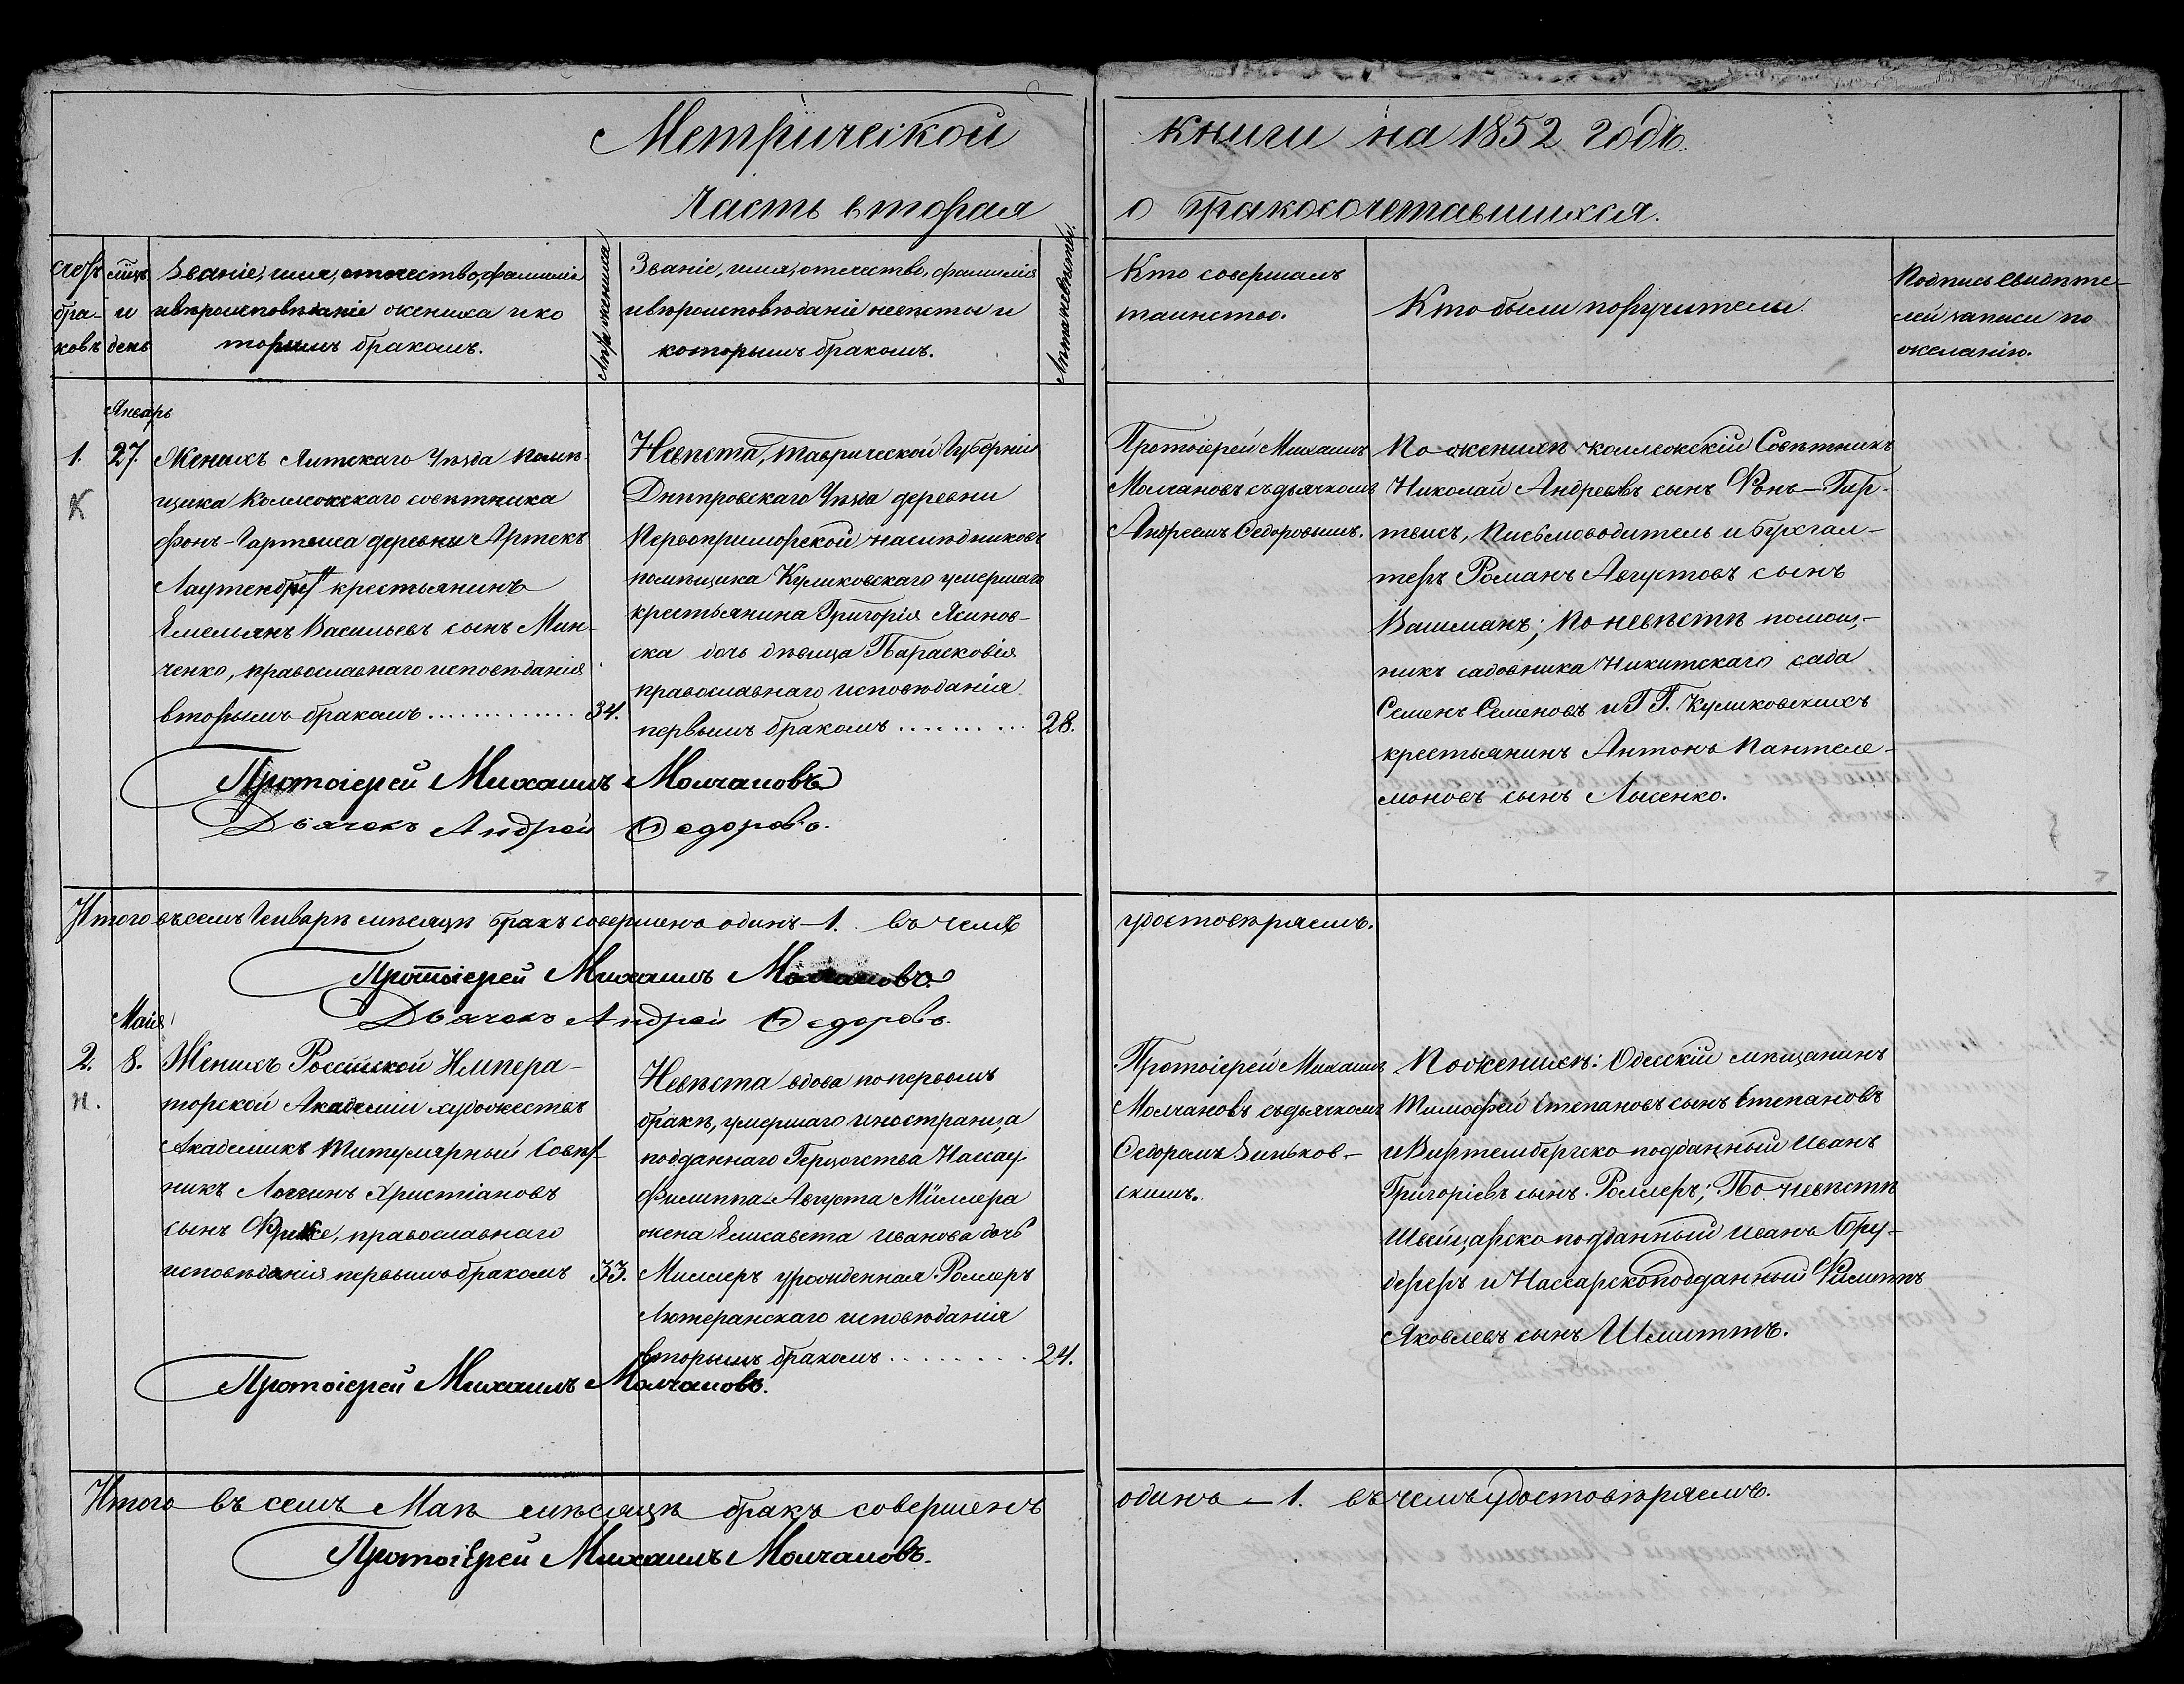 Метрической книги на 1852 годъ.
Часть вторая о бракосочетавшихся.
Счетъ браковъ
мѣсяцъ и день
Званіе, имя, отчество, фамилія
и вѣроисповѣданіе жениха и ко
торымъ бракомъ.
Лѣта жениха
Званіе, имя, отечество, фамилія
и вѣроисповѣданіе невѣсты и
которымъ бракомъ.
Лѣта невѣсты.
Кто совершалъ
таинство.
Кто были поручители.
Подпись свидѣте-
лей записи по
желанію.
Январь
1. 27.
К
Женихъ Ялтскаго Уѣзда помѣ-
щика Коллежскаго совѣтника
фонъ-Гартвиса деревни Артекъ
крестьянинъ
Емельянъ Васильевъ сынъ Мин-
ченко, православнаго исповѣданія
вторымъ бракомъ............. 34.
Невѣста, Таврической Губерніи
Днѣпровскаго Уѣзда деревни
Первоприморской наслѣдниковъ
помѣщика Куликовскаго умершаго
крестьянина Григорія Ясинов-
ска дочь дѣвица Парасковія
православнаго исповѣданія
первымъ бракомъ.......... 28.
Протоіерей Михаилъ
Молчановъ съ дьячкомъ
Андреемъ Ѳедоровымъ.
По женихѣ коллежскій Совѣтникъ
Николай Андреевъ сынъ Фонъ-Гар-
твисъ, Письмоводитель и бухгал-
теръ Романъ Августовъ сынъ
Вашманъ; По невѣстѣ помощ-
никъ садовника Никитскаго сада
Семенъ Семеновъ и Г.Г. Куликовскихъ
крестьянинъ Антонъ Пантеле-
моновъ сынъ Лысенко.
Протоіерей Михаилъ Молчановъ
Дьячекъ Андрей Ѳедоровъ.
Итого въ семъ Генварѣ мѣсяцѣ бракъ совершенъ одинъ-1. въ чемъ удостовѣряемъ.
Протоіерей Михаилъ Молчановъ.
Дьячекъ Андрей Ѳедоровъ.
Маія
2. 8.
Н.
Женихъ Россійской Импера-
торской Академіи художествъ
Академикъ Титулярный Совѣт-
никъ Логгинъ Христіановъ
сынъ Фрикке, православнаго
исповѣданія первымъ бракомъ 33.
Невѣста вдова по первомъ
бракѣ, умершаго иностранца
подданнаго Герцогства Нассау
Филиппа-Августа Мüллера
жена Елисавета Иванова дочь
Миллеръ урожденная Роллеръ
Лютеранскаго исповѣданія
вторымъ бракомъ......... 24.
Протоіерей Михаилъ
Молчановъ съ дьячкомъ
Ѳедоромъ Зиньков-
скимъ.
По женихѣ: Одесскій мѣщанинъ
Тимофей Степановъ сынъ Степановъ
и Виртембергско подданный Иванъ
Григоріевъ сынъ Роллеръ; По невѣстѣ
Швейцарско подданный Иванъ Бру-
дереръ и Нассарскоподданный Филиппъ
Яковлевъ сынъ Шмиттъ.
Протоіерей Михаилъ Молчановъ.
Итого въ семъ Маѣ мѣсяцѣ бракъ совершенъ одинъ-1. въ чемъ удостовѣряемъ.
Протоіерей Михаилъ Молчановъ.